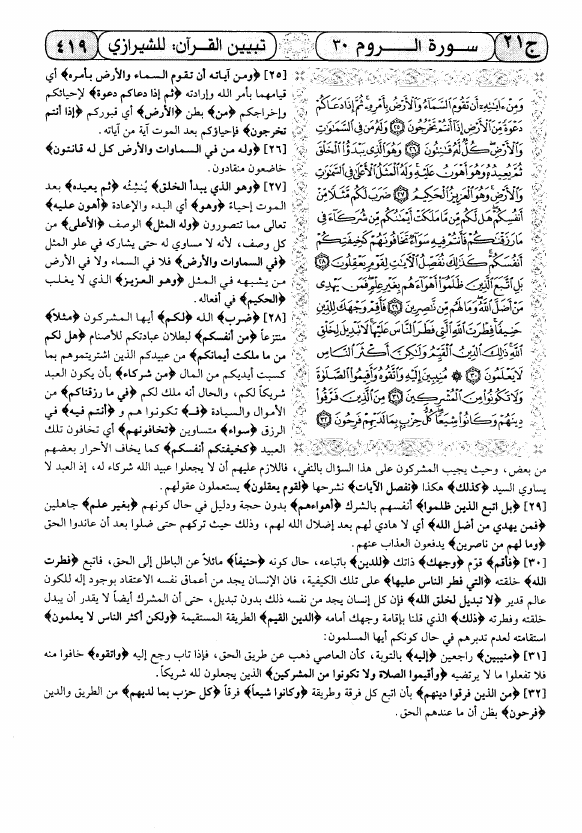 ج٢١
سورة الـــروم ٣٠
تبيين القرآن: للشيرازي
٤١٩
وَمِنْ ءَايَٰتِهِۦٓ أَن تَقُومَ ٱلسَّمَآءُ وَٱلْأَرْضُ بِأَمْرِهِۦ ثُمَّ إِذَا دَعَاكُمْ
دَعْوَةً مِّنَ ٱلْأَرْضِ إِذَآ أَنتُمْ تَخْرُجُونَ ٢٥ وَلَهُۥ مَن فِى ٱلسَّمَٰوَٰتِ
وَٱلْأَرْضِ كُلٌّ لَّهُۥ قَٰنِتُونَ ٢٦ وَهُوَ ٱلَّذِى يَبْدَؤُا۟ ٱلْخَلْقَ
ثُمَّ يُعِيدُهُۥ وَهُوَ أَهْوَنُ عَلَيْهِ وَلَهُ ٱلْمَثَلُ ٱلْأَعْلَىٰ فِى ٱلسَّمَٰوَٰتِ
وَٱلْأَرْضِ وَهُوَ ٱلْعَزِيزُ ٱلْحَكِيمُ ٢٧ ضَرَبَ لَكُم مَّثَلًا مِّنْ
أَنفُسِكُمْ هَل لَّكُم مِّن مَّا مَلَكَتْ أَيْمَٰنُكُم مِّن شُرَكَآءَ فِى
مَا رَزَقْنَٰكُمْ فَأَنتُمْ فِيهِ سَوَآءٌ تَخَافُونَهُمْ كَخِيفَتِكُمْ
أَنفُسَكُمْ كَذَٰلِكَ نُفَصِّلُ ٱلْءَايَٰتِ لِقَوْمٍ يَعْقِلُونَ ٢٨
بَلِ ٱتَّبَعَ ٱلَّذِينَ ظَلَمُوٓا۟ أَهْوَآءَهُم بِغَيْرِ عِلْمٍ فَمَن يَهْدِى
مَنْ أَضَلَّ ٱللَّهُ وَمَا لَهُم مِّن نَّٰصِرِينَ ٢٩ فَأَقِمْ وَجْهَكَ لِلدِّينِ
حَنِيفًا فِطْرَتَ ٱللَّهِ ٱلَّتِى فَطَرَ ٱلنَّاسَ عَلَيْهَا لَا تَبْدِيلَ لِخَلْقِ
ٱللَّهِ ذَٰلِكَ ٱلدِّينُ ٱلْقَيِّمُ وَلَٰكِنَّ أَكْثَرَ ٱلنَّاسِ
لَا يَعْلَمُونَ ٣٠ مُنِيبِينَ إِلَيْهِ وَٱتَّقُوهُ وَأَقِيمُوا۟ ٱلصَّلَوٰةَ
وَلَا تَكُونُوا۟ مِنَ ٱلْمُشْرِكِينَ ٣١ مِنَ ٱلَّذِينَ فَرَّقُوا۟
دِينَهُمْ وَكَانُوا۟ شِيَعًا كُلُّ حِزْبٍۭ بِمَا لَدَيْهِمْ فَرِحُونَ ٣٢
[٢٥] ﴿ومن آياته أن تقوم السماء والأرض بأمره﴾ أي
قيامهما بأمر الله وإرادته ﴿ثم إذا دعاكم دعوة﴾ لإحيائكم
وإخراجكم ﴿من﴾ بطن ﴿الأرض﴾ أي قبوركم ﴿إذا أنتم
تخرجون﴾ فإحياؤكم بعد الموت آية من آياته.
[٢٦] ﴿وله من في السماوات والأرض كل له قانتون﴾
خاضعون منقادون.
[٢٧] ﴿وهو الذي يبدأ الخلق﴾ يُنشِئُه ﴿ثم يعيده﴾ بعد
الموت إحياءً ﴿وهو﴾ أي البدء والإعادة ﴿أهون عليه﴾
تعالى مما تتصورون ﴿وله المثل﴾ الوصف ﴿الأعلى﴾ من
كل وصف، لأنه لا مساوي له حتى يشاركه في علو المثل
﴿في السماوات والأرض﴾ فلا في السماء ولا في الأرض
من يشبهه في المثل ﴿وهو العزيز﴾ الذي لا يغلب
﴿الحكيم﴾ في أفعاله.
[٢٨] ﴿ضرب﴾ الله ﴿لكم﴾ أيها المشركون ﴿مثلاً﴾
منتزعاً ﴿من أنفسكم﴾ لبطلان عبادتكم للأصنام ﴿هل لكم
من ما ملكت أيمانكم﴾ من عبيدكم الذين اشتريتموهم بما
كسبت أيديكم من المال ﴿من شركاء﴾ بأن يكون العبد
شريكاً لكم، والحال أنه ملك لكم ﴿في ما رزقناكم﴾ من
الأموال والسيادة ﴿فـ﴾ تكونوا هم و ﴿أنتم فيه﴾ في
الرزق ﴿سواء﴾ متساوين ﴿تخافونهم﴾ أي تخافون تلك
العبيد ﴿كخيفتكم أنفسكم﴾ كما يخاف الأحرار بعضهم
من بعض، وحيث يجيب المشركون على هذا السؤال بالنفي، فاللازم عليهم أن لا يجعلوا عبيد الله شركاء له، إذ العبد لا
يساوي السيد ﴿كذلك﴾ هكذا ﴿نفصل الآيات﴾ نشرحها ﴿لقوم يعقلون﴾ يستعملون عقولهم.
[٢٩] ﴿بل اتبع الذين ظلموا﴾ أنفسهم بالشرك ﴿أهواءهم﴾ بدون حجة ودليل في حال كونهم ﴿بغير علم﴾ جاهلين
﴿فمن يهدي من أضل الله﴾ أي لا هادي لهم بعد إضلال الله لهم، وذلك حيث تركهم حتى ضلوا بعد أن عاندوا الحق
﴿وما لهم من ناصرين﴾ يدفعون العذاب عنهم.
[٣٠] ﴿فأقم﴾ قوّم ﴿وجهك﴾ ذاتك ﴿للدين﴾ باتباعه، حال كونه ﴿حنيفاً﴾ مائلاً عن الباطل إلى الحق، فاتبع ﴿فطرت
الله﴾ خلقته ﴿التي فطر الناس عليها﴾ على تلك الكيفية، فان الإنسان يجد من أعماق نفسه الاعتقاد بوجود إله للكون
عالم قدير ﴿لا تبديل لخلق الله﴾ فإن كل إنسان يجد من نفسه ذلك بدون تبديل، حتى أن المشرك أيضاً لا يقدر أن يبدل
خلقته وفطرته ﴿ذلك﴾ الذي قلنا بإقامة وجهك أمامه ﴿الدين القيم﴾ الطريقة المستقيمة ﴿ولكن أكثر الناس لا يعلمون﴾
استقامته لعدم تدبرهم في حال كونكم أيها المسلمون:
[٣١] ﴿منيبين﴾ راجعين ﴿إليه﴾ بالتوبة، كأن العاصي ذهب عن طريق الحق، فإذا تاب رجع إليه ﴿واتقوه﴾ خافوا منه
فلا تفعلوا ما لا يرتضيه ﴿وأقيموا الصلاة ولا تكونوا من المشركين﴾ الذين يجعلون لله شريكاً.
[٣٢] ﴿من الذين فرقوا دينهم﴾ بأن اتبع كل فرقة وطريقة ﴿وكانوا شيعاً﴾ فرقاً ﴿كل حزب بما لديهم﴾ من الطريق والدين
﴿فرحون﴾ بظن أن ما عندهم الحق.